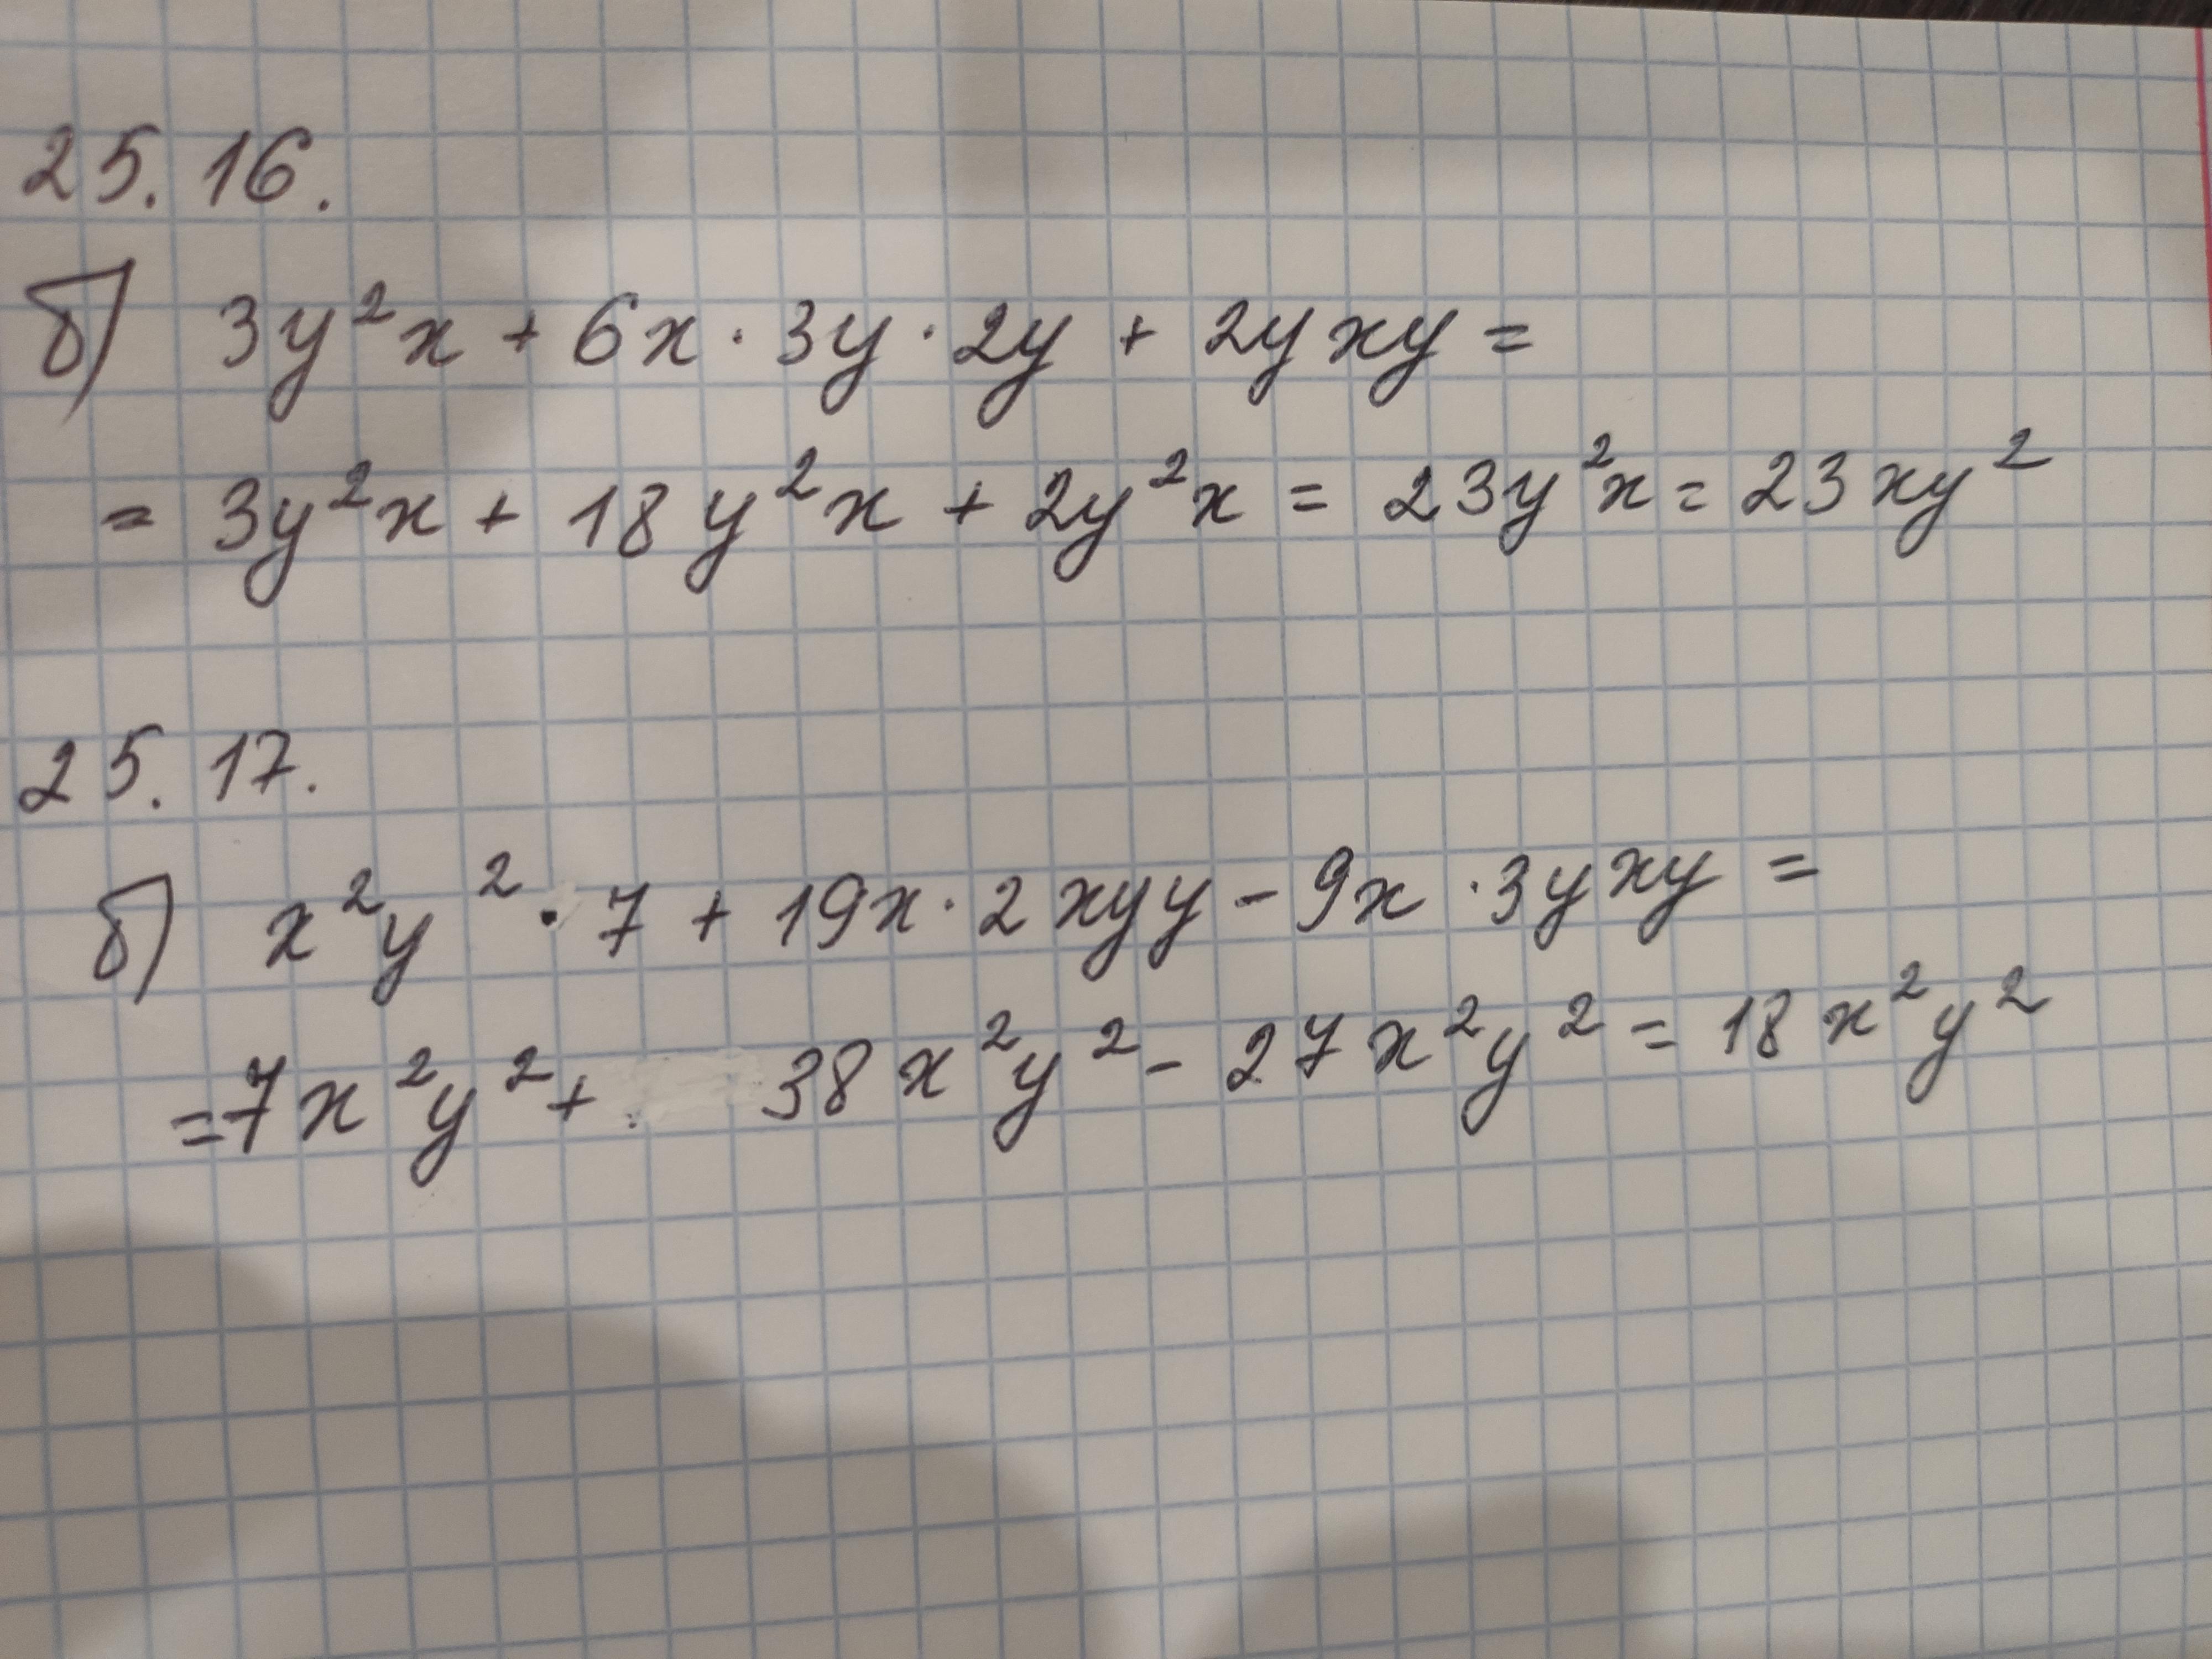 25.16.
б) 3y²x + 6x · 3y · 2y + 2yxy =
= 3y²x + 18y²x + 2y²x = 23y²x = 23xy²
25.17.
б) x²y² · 7 + 19x · 2xyy - 9x · 3yxy =
= 7x²y² + 38x²y² - 27x²y² = 18x²y²